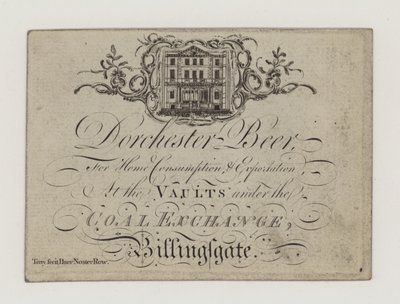 Dorchester Beer,
For Home Consumption & Exportation
At the VAULTS under the
COAL EXCHANGE,
Billingsgate.
Terry fecit Pater Noster Row.